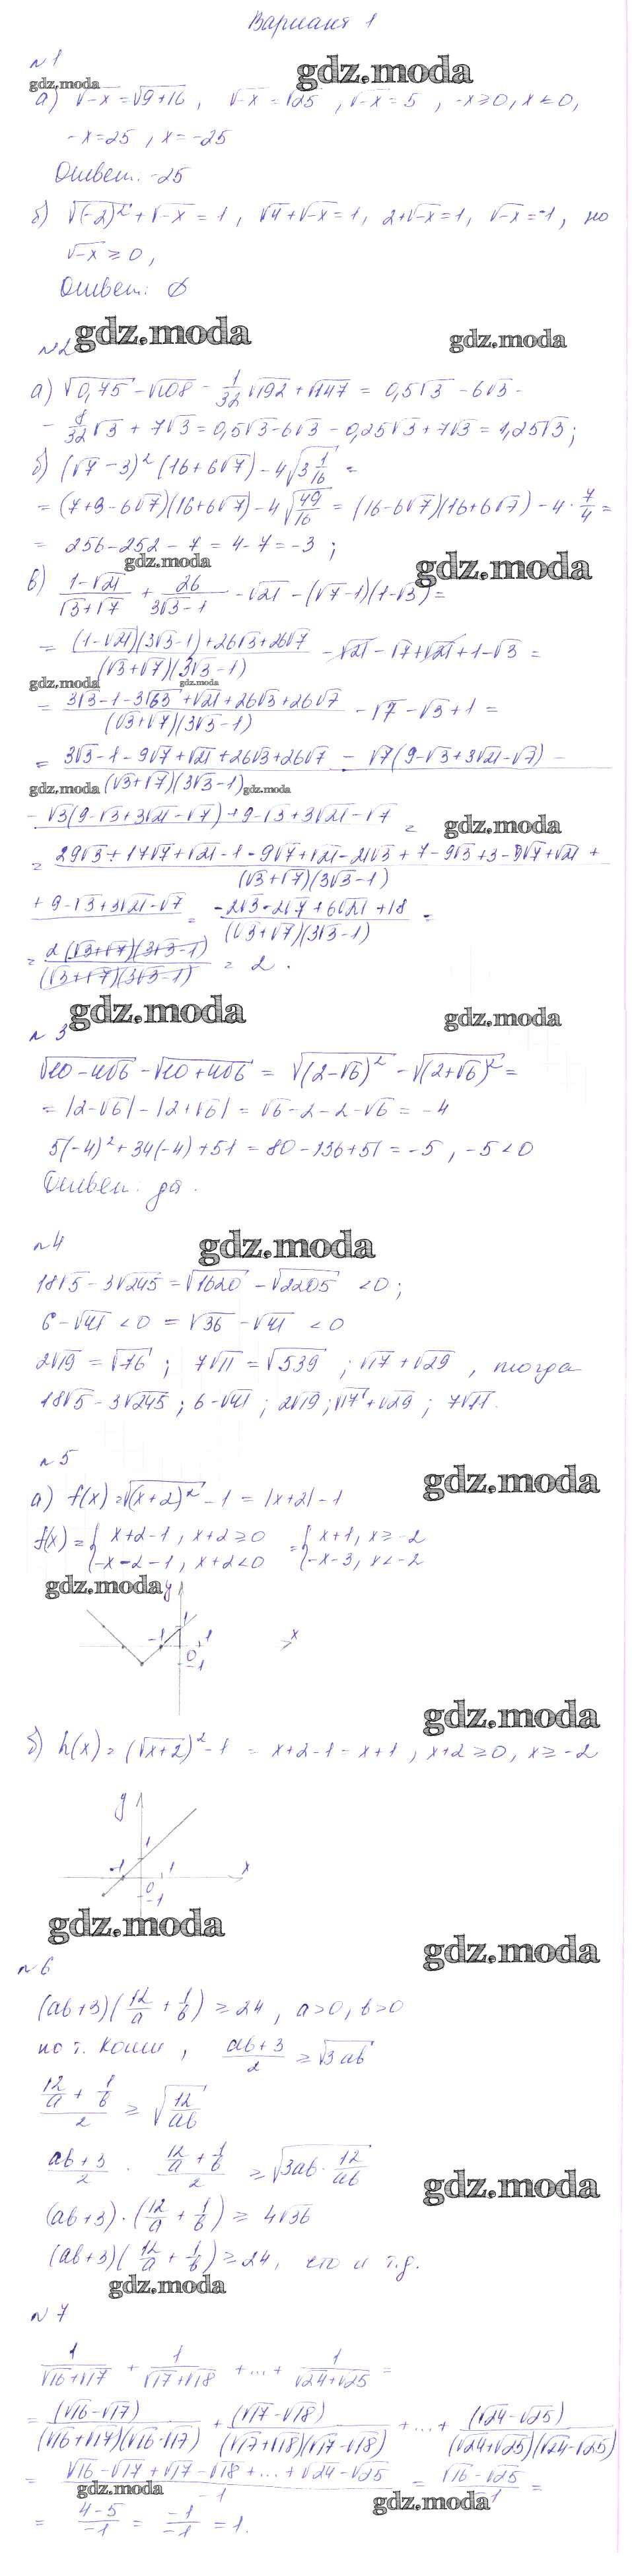 Вариант 1
№1
gdz.moda
gdz.moda
а) √-x = √9+16, √-x = √25, √-x = 5, -x≥0, x≤0,
-x=25, x=-25
Ответ: -25
б) √(-2)² + √-x = 1, √4+√-x=1, 2+√-x=1, √-x=-1, но
√-x ≥ 0,
Ответ: ∅
№2
gdz.moda
gdz.moda
а) √0,75 - √108 - 1/32 √192 + √147 = 0,5√3 - 6√3 -
- 8/32 √3 + 7√3 = 0,5√3 - 6√3 - 0,25√3 + 7√3 = 1,25√3;
б) (√7 - 3)² (16+6√7) - 4√3 1/16 =
= (7+9-6√7)(16+6√7) - 4√49/16 = (16-6√7)(16+6√7) - 4·7/4 =
= 256-252-7 = 4-7=-3;
gdz.moda
gdz.moda
в) (1-√21)/(√3+√7) + 26/(3√3-1) - √21 - (√7-1)(1-√3) =
= ((1-√21)(3√3-1)+26√3+26√7)/((√3+√7)(3√3-1)) - √21 - √7+√21+1-√3 =
gdz.moda
gdz.moda
= (3√3-1-3√63+√21+26√3+26√7)/((√3+√7)(3√3-1)) - √7 - √3+1 =
= 3√3-1-9√7+√21+26√3+26√7 - √7(9-√3+3√21-√7) -
gdz.moda
(√3+√7)(3√3-1)
gdz.moda
- √3(9-√3+3√21-√7)+9-√3+3√21-√7 =
gdz.moda
= 29√3+17√7+√21-1-9√7+√21-21√3+7-9√3+3-9√7+√21+
(√3+√7)(3√3-1)
+9-√3+3√21-√7 = (-2√3-2√7+6√21+18)/((√3+√7)(3√3-1)) =
= 2(√3+√7)(3√3-1)/((√3+√7)(3√3-1)) = 2.
gdz.moda
gdz.moda
№3
√10-4√6 - √10+4√6 = √(2-√6)² - √(2+√6)² =
= |2-√6| - |2+√6| = √6-2-2-√6 = -4
5(-4)²+34(-4)+51 = 80-136+51 = -5, -5<0
Ответ: да.
№4
gdz.moda
18√5 - 3√245 = √1620 - √2205 <0;
6-√41 <0 = √36 - √41 <0
2√19 = √76; 7√11 = √539; √17+√29, тогда
18√5-3√245; 6-√41; 2√19; √17+√29; 7√11.
№5
gdz.moda
а) f(x)=√(x+2)² - 1 = |x+2|-1
f(x)={ x+2-1, x+2≥0 = { x+1, x≥-2
-x-2-1, x+2<0 -x-3, x<-2
gdz.moda
y
x
-1
1
1
0
-1
gdz.moda
б) h(x) = (√x+2)²-1 = x+2-1 = x+1, x+2≥0, x≥-2
y
1
-1
1
x
0
-1
gdz.moda
gdz.moda
№6
(ab+3)(12/a + 1/b) ≥ 24, a>0, b>0
по т. Коши, (ab+3)/2 ≥ √3ab
(12/a + 1/b)/2 ≥ √12/ab
(ab+3)/2 · (12/a + 1/b)/2 ≥ √3ab·12/ab
gdz.moda
(ab+3)·(12/a + 1/b) ≥ 4√36
(ab+3)(12/a + 1/b) ≥ 24, что и т.д.
gdz.moda
№7
1/(√16+√17) + 1/(√17+√18) + ... + 1/(√24+√25) =
= (√16-√17)/((√16+√17)(√16-√17)) + (√17-√18)/((√17+√18)(√17-√18)) + ... + (√24-√25)/((√24+√25)(√24-√25))
= (√16-√17+√17-√18+...+√24-√25)/-1 = (√16-√25)/-1 =
gdz.moda
gdz.moda
= (4-5)/-1 = -1/-1 = 1.